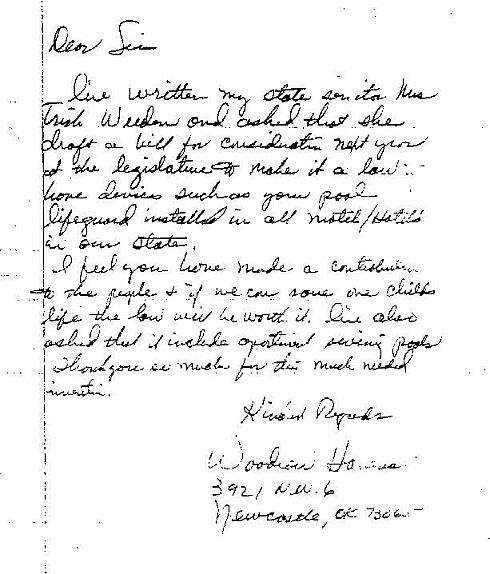 Dear Sir
I've written my state senitor Mrs
Trish Weedon and asked that she
draft a bill for consideration next year
at the legislature to make it a law
have devices such as your pool
lifeguard installed in all Motel/Hotels
in our state.
I feel you have made a contribution
to the people & if we can save one childs
life the law will be worth it. I've also
asked that it include apartment swiming pools
Thank you so much for this much needed
invention.
Kindest Regards
Woodrow
3921 N.W. 6
Newcastle, OK